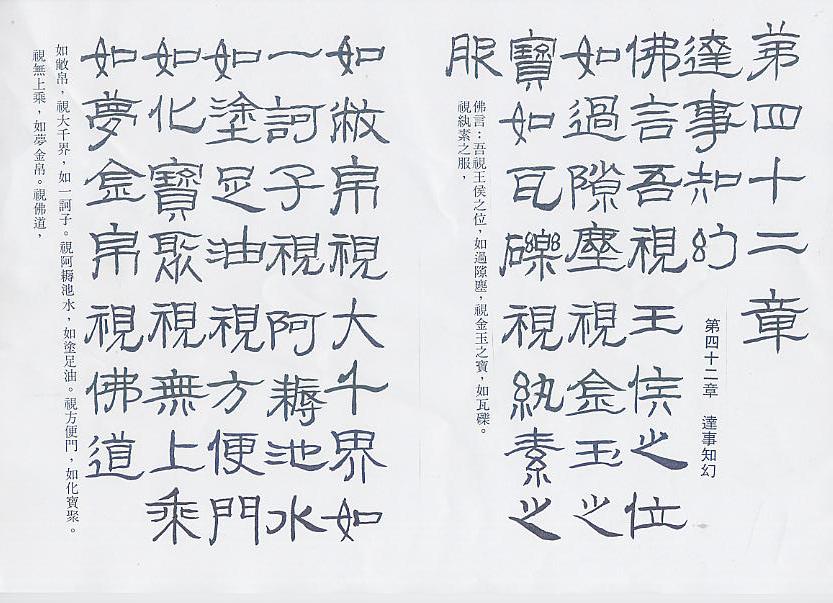 第四十二章
達事知幻
第四十二章 達事知幻
佛言吾視王侯之位
如過隙塵視金玉之
寶如瓦礫視紈素之
服
佛言：吾視王侯之位，如過隙塵，視金玉之寶，如瓦礫。
視紈素之服，
如敝帛視大千界如
一訶子視阿耨池水
如塗足油視方便門
如化寶聚視無上乘
如夢金帛視佛道
如敝帛，視大千界，如一訶子。視阿耨池水，如塗足油。視方便門，如化寶聚。
視無上乘，如夢金帛。視佛道，